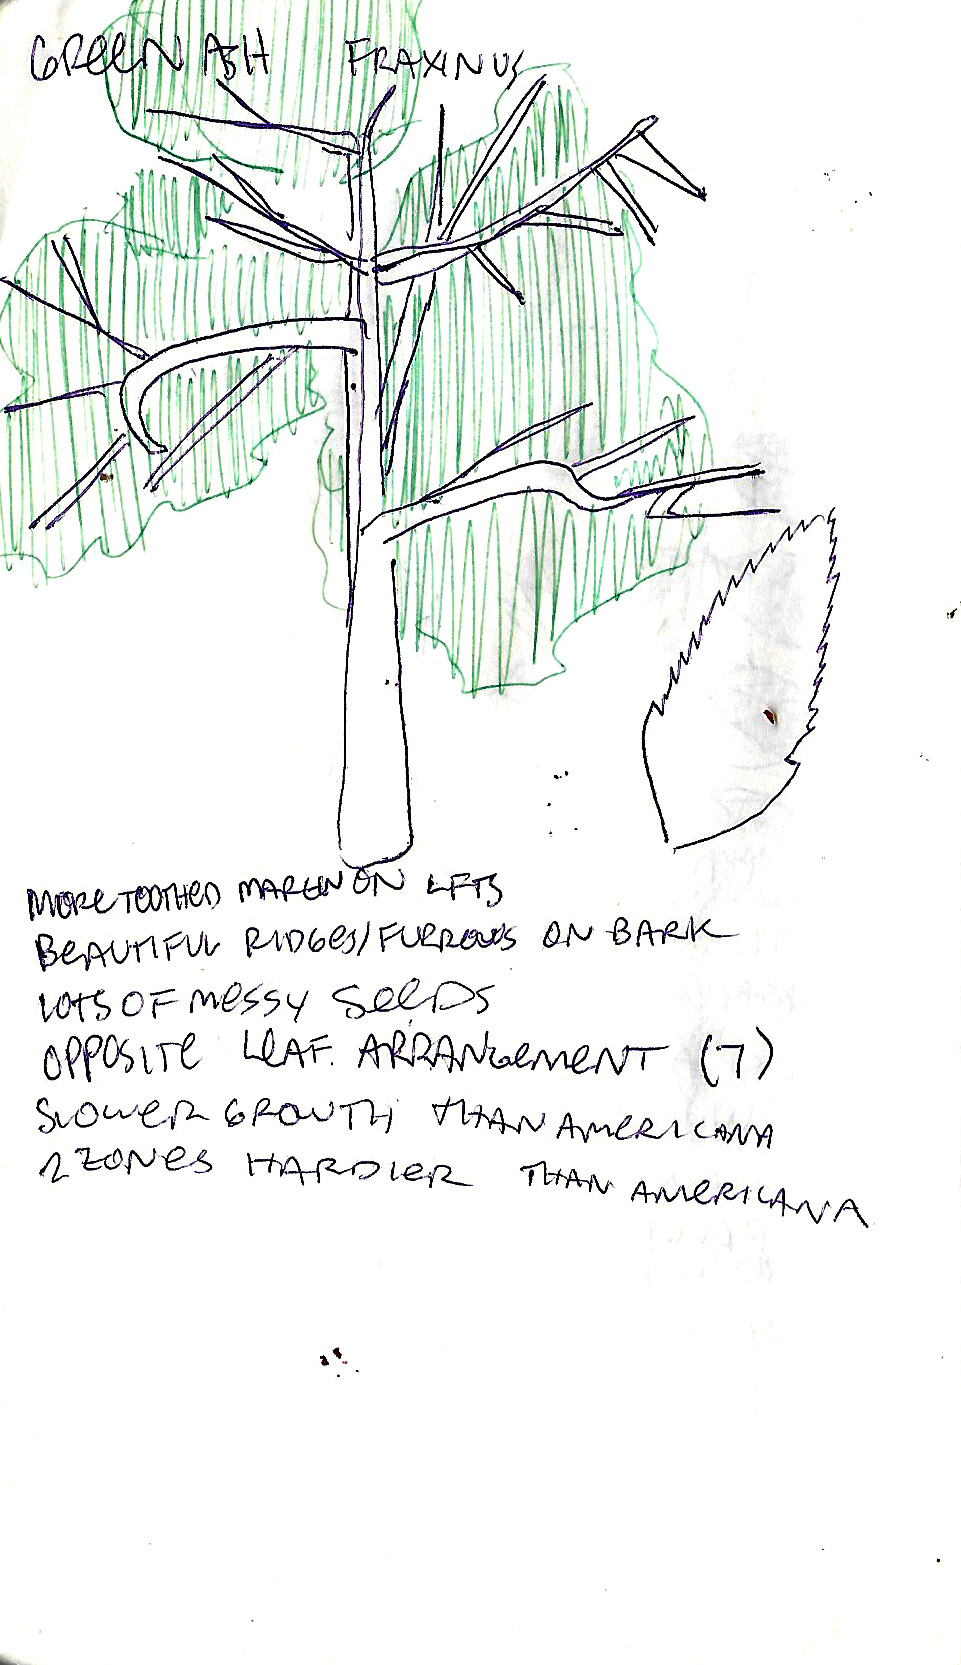 GREEN ASH FRAXINUS
MORE TOOTHED MARGIN ON LFTS
BEAUTIFUL RIDGES/FURROWS ON BARK
LOTS OF MESSY SEEDS
OPPOSITE LEAF. ARRANGEMENT (7)
SLOWER GROWTH THAN AMERICANA
2 ZONES HARDIER THAN AMERICANA